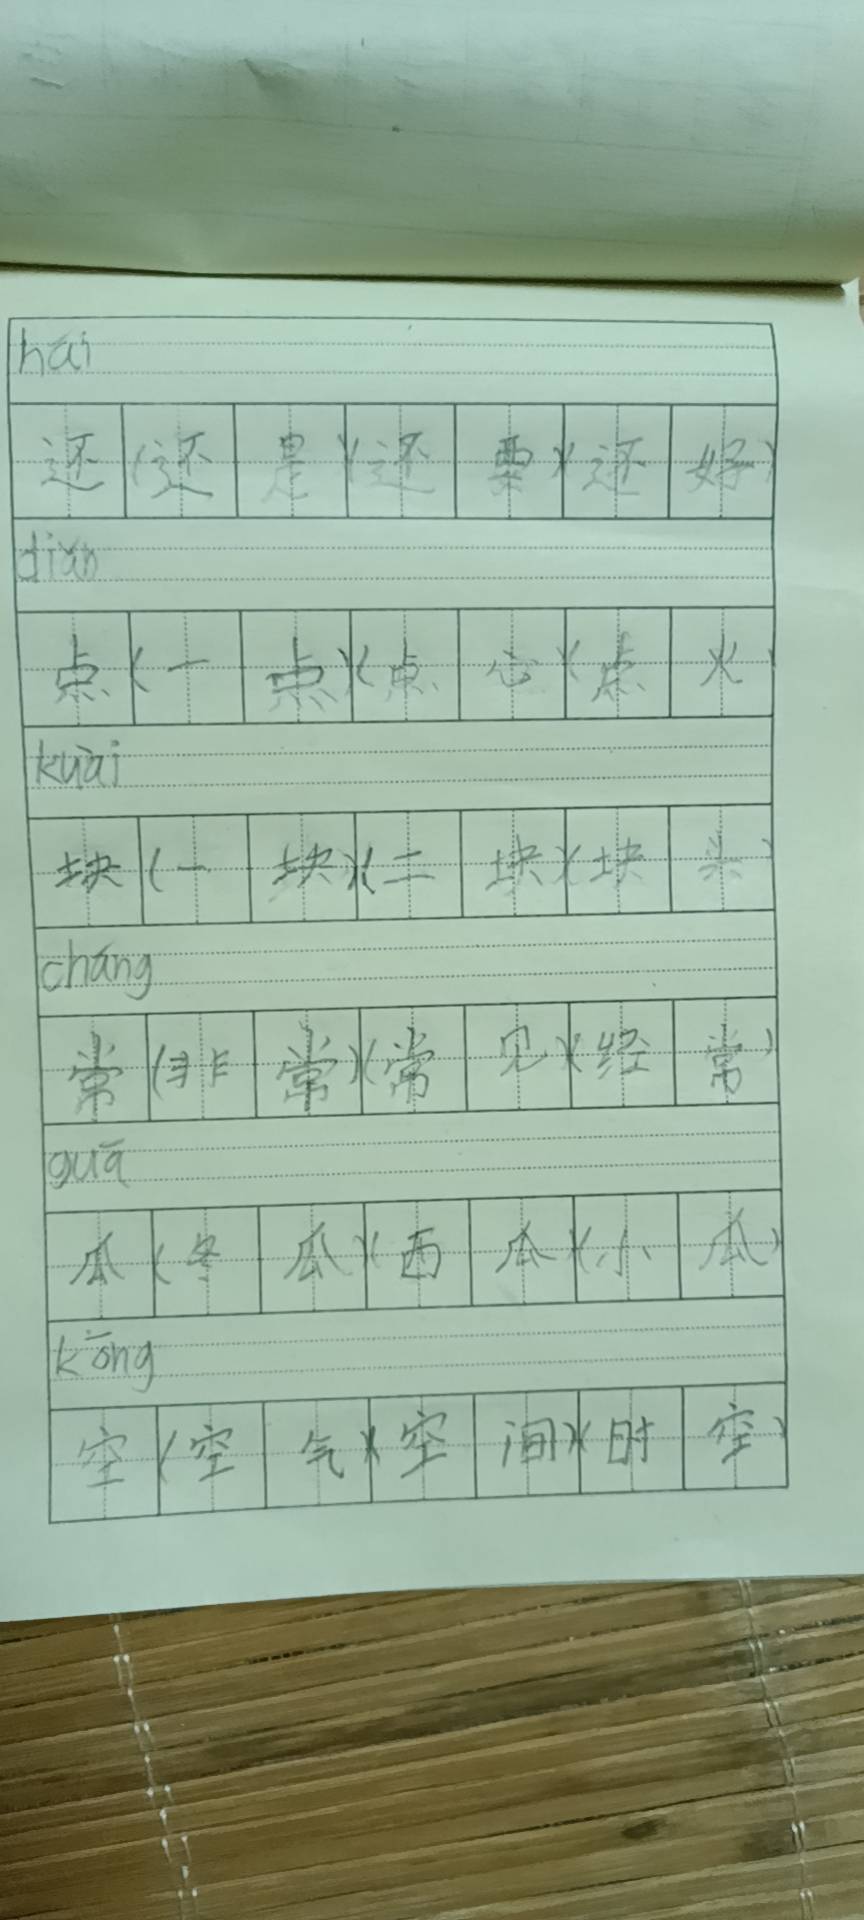 hái
还(还是)(还要)(还好)
diǎn
点(一点)(点心)(点火)
kuài
块(一块)(二块)(块头)
cháng
常(非常)(常见)(经常)
guā
瓜(冬瓜)(西瓜)(小瓜)
kōng
空(空气)(空间)(时空)